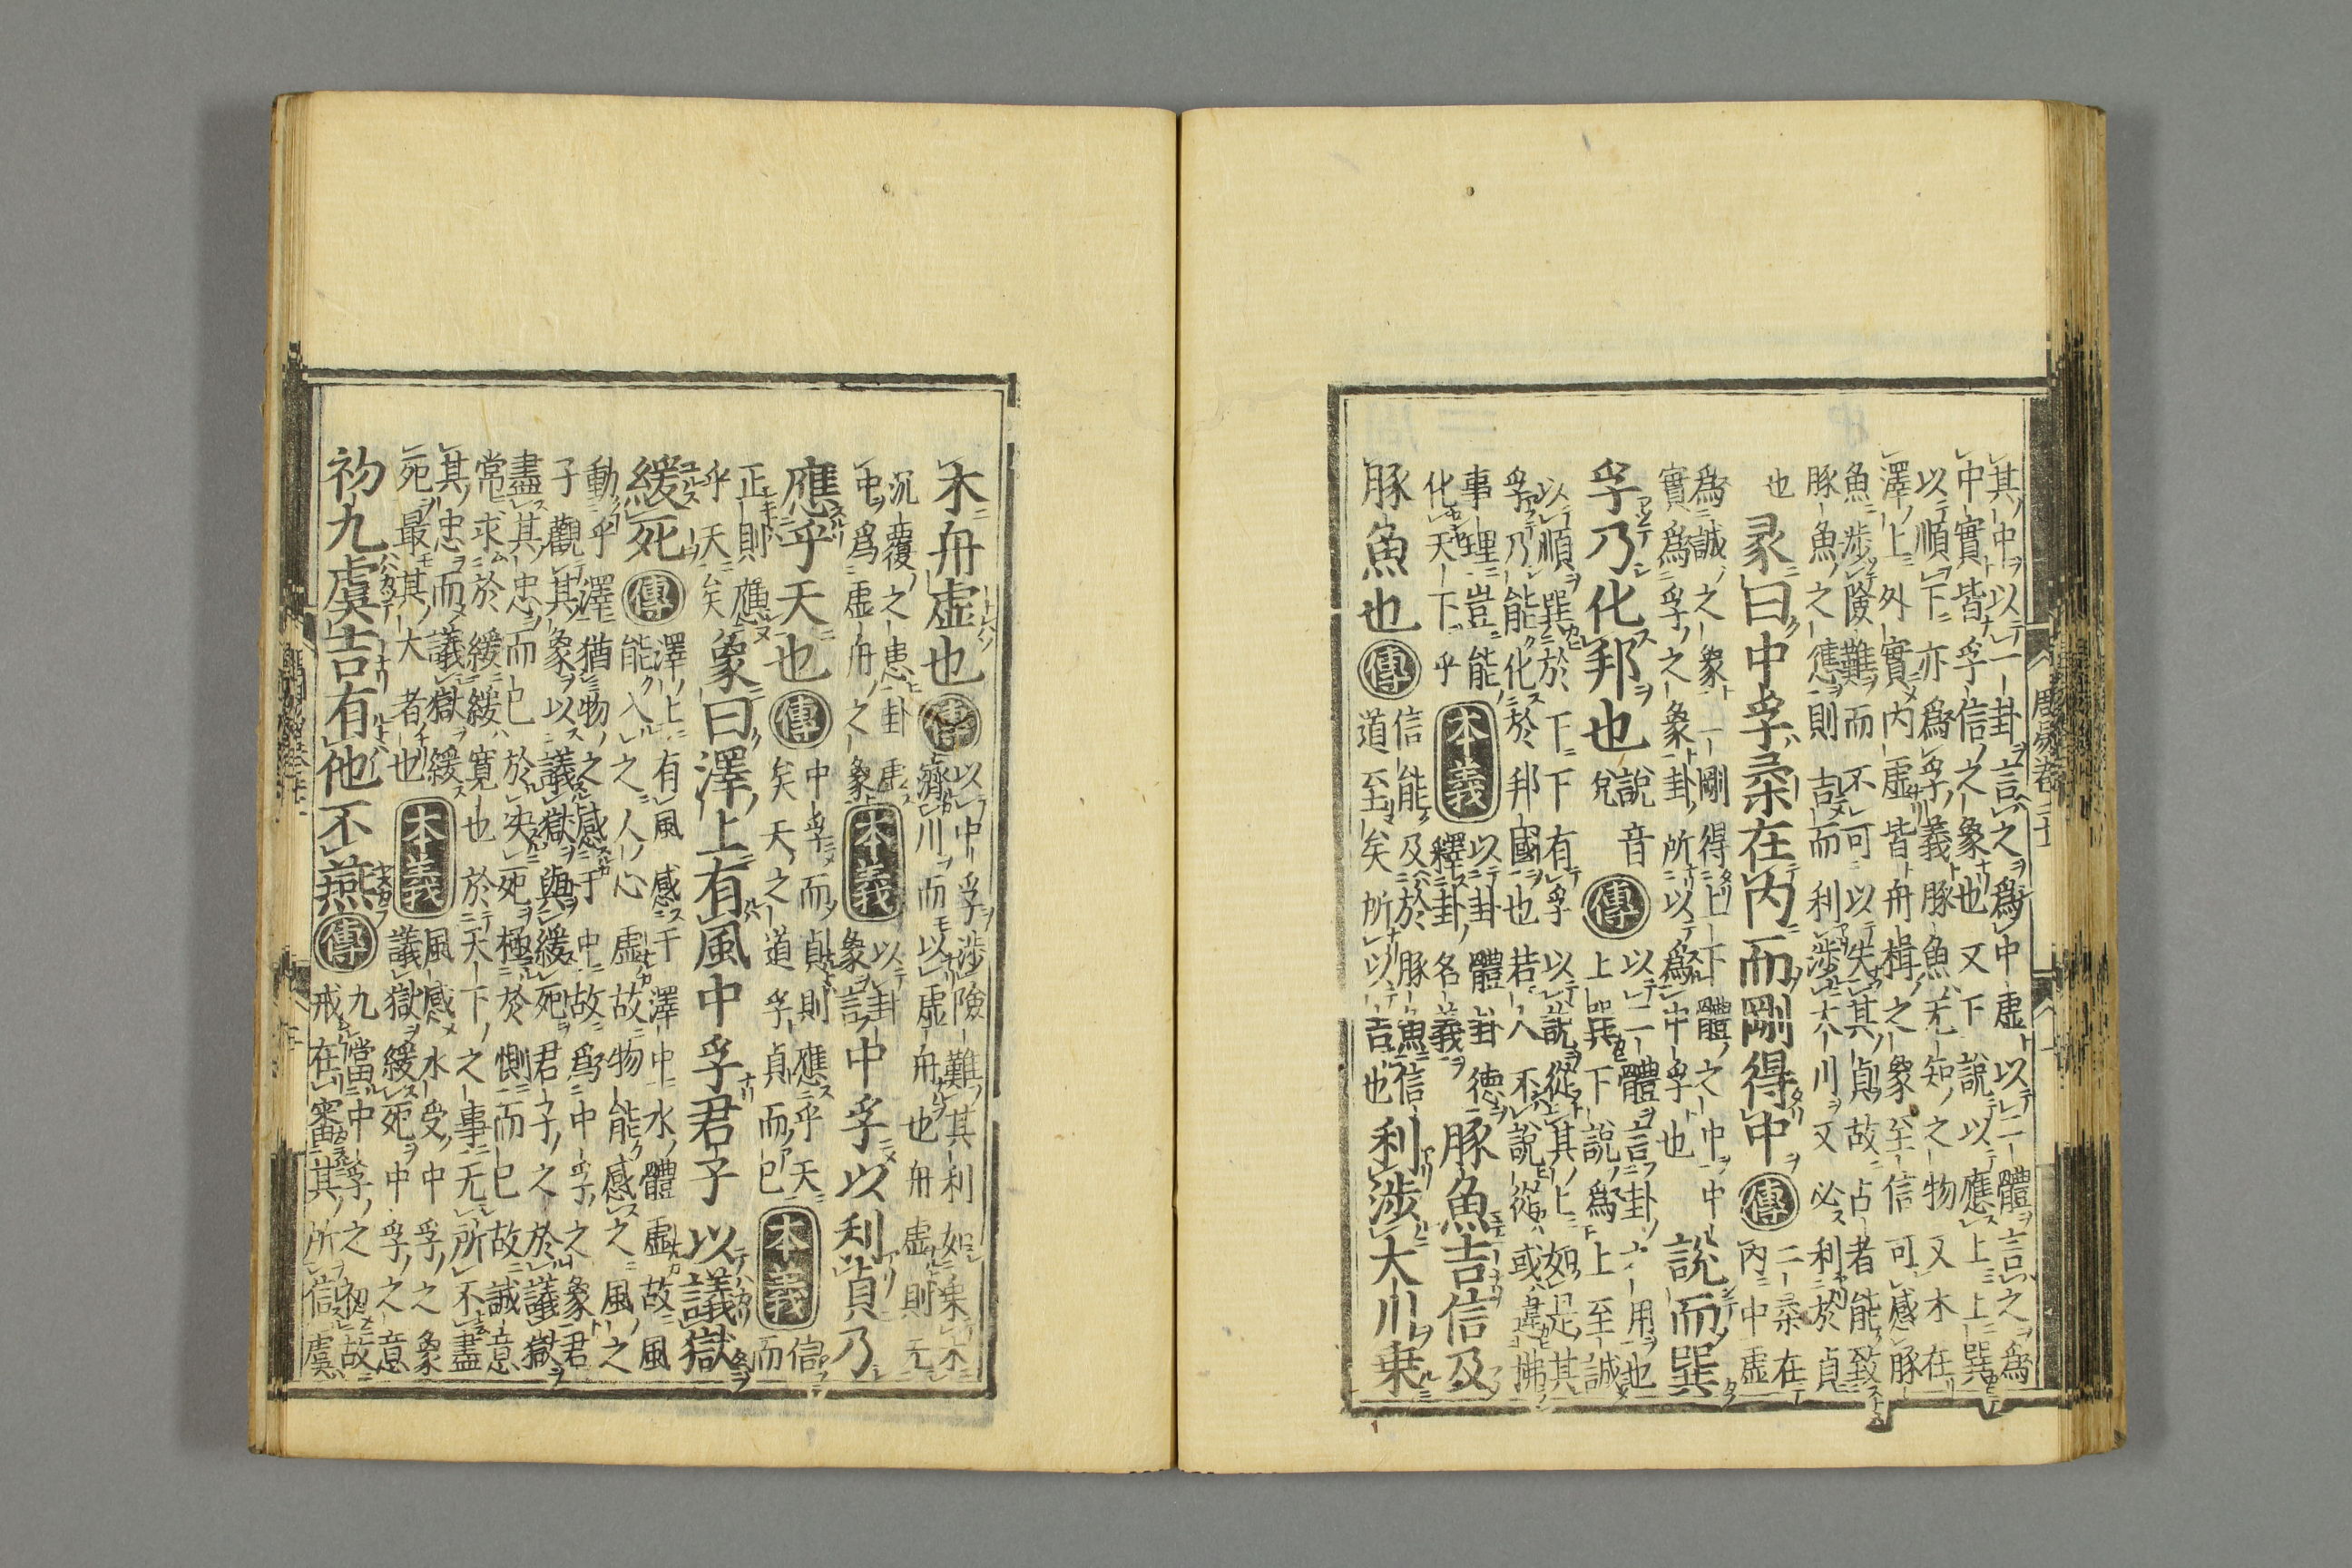 其中以一卦言之爲中虛以二體言之爲
中實皆孚信之象也又下說以應上上巽
以順下亦爲孚義豚魚无知之物又木在
澤上外實內虛皆舟楫之象至信可感豚
魚涉險難而不可以失其貞故占者能致
豚魚之應則吉而利涉大川又必利於貞
也
彖曰中孚柔在內而剛得中
傳
二柔在
內中虛
爲誠之象二剛得上下體之中中
實爲孚之象卦所以爲中孚也
說而巽
孚乃化邦也
說音
兌
傳
以二體言卦之用也
上巽下說爲上至誠
以順巽於下下有孚以說從其上如是其
孚乃能化於邦國也若人不說從或違拂
事理豈能
化天下乎
本義
以卦體卦德
釋卦名義
豚魚吉信及
豚魚也
傳
信能及於豚魚信
道至矣所以吉也
利涉大川乗
木舟虛也
傳
以中孚涉險難其利如乗木
濟川而以虛舟也舟虛則无
沉覆之患卦虛
中爲虛舟之象
本義
以卦
象言
中孚以利貞乃
應乎天也
傳
中孚而貞則應乎天
矣天之道孚貞而已
本義
信
而
正則應
乎天矣
象曰澤上有風中孚君子以議獄
緩死
傳
澤上有風感于澤中水體虛故風
能入之人心虛故物能感之風之
動乎澤猶物之感于中故爲中孚之象君
子觀其象以議獄與緩死君子之於議獄
盡其忠而已於決死極於惻而已故誠意
常求於緩緩寬也於天下之事无所不盡
其忠而議獄緩
死最其大者也
本義
風感水受中孚之象
議獄緩死中孚之意
初九虞吉有他不燕
傳
九當中孚之初故
戒在審其所信虞